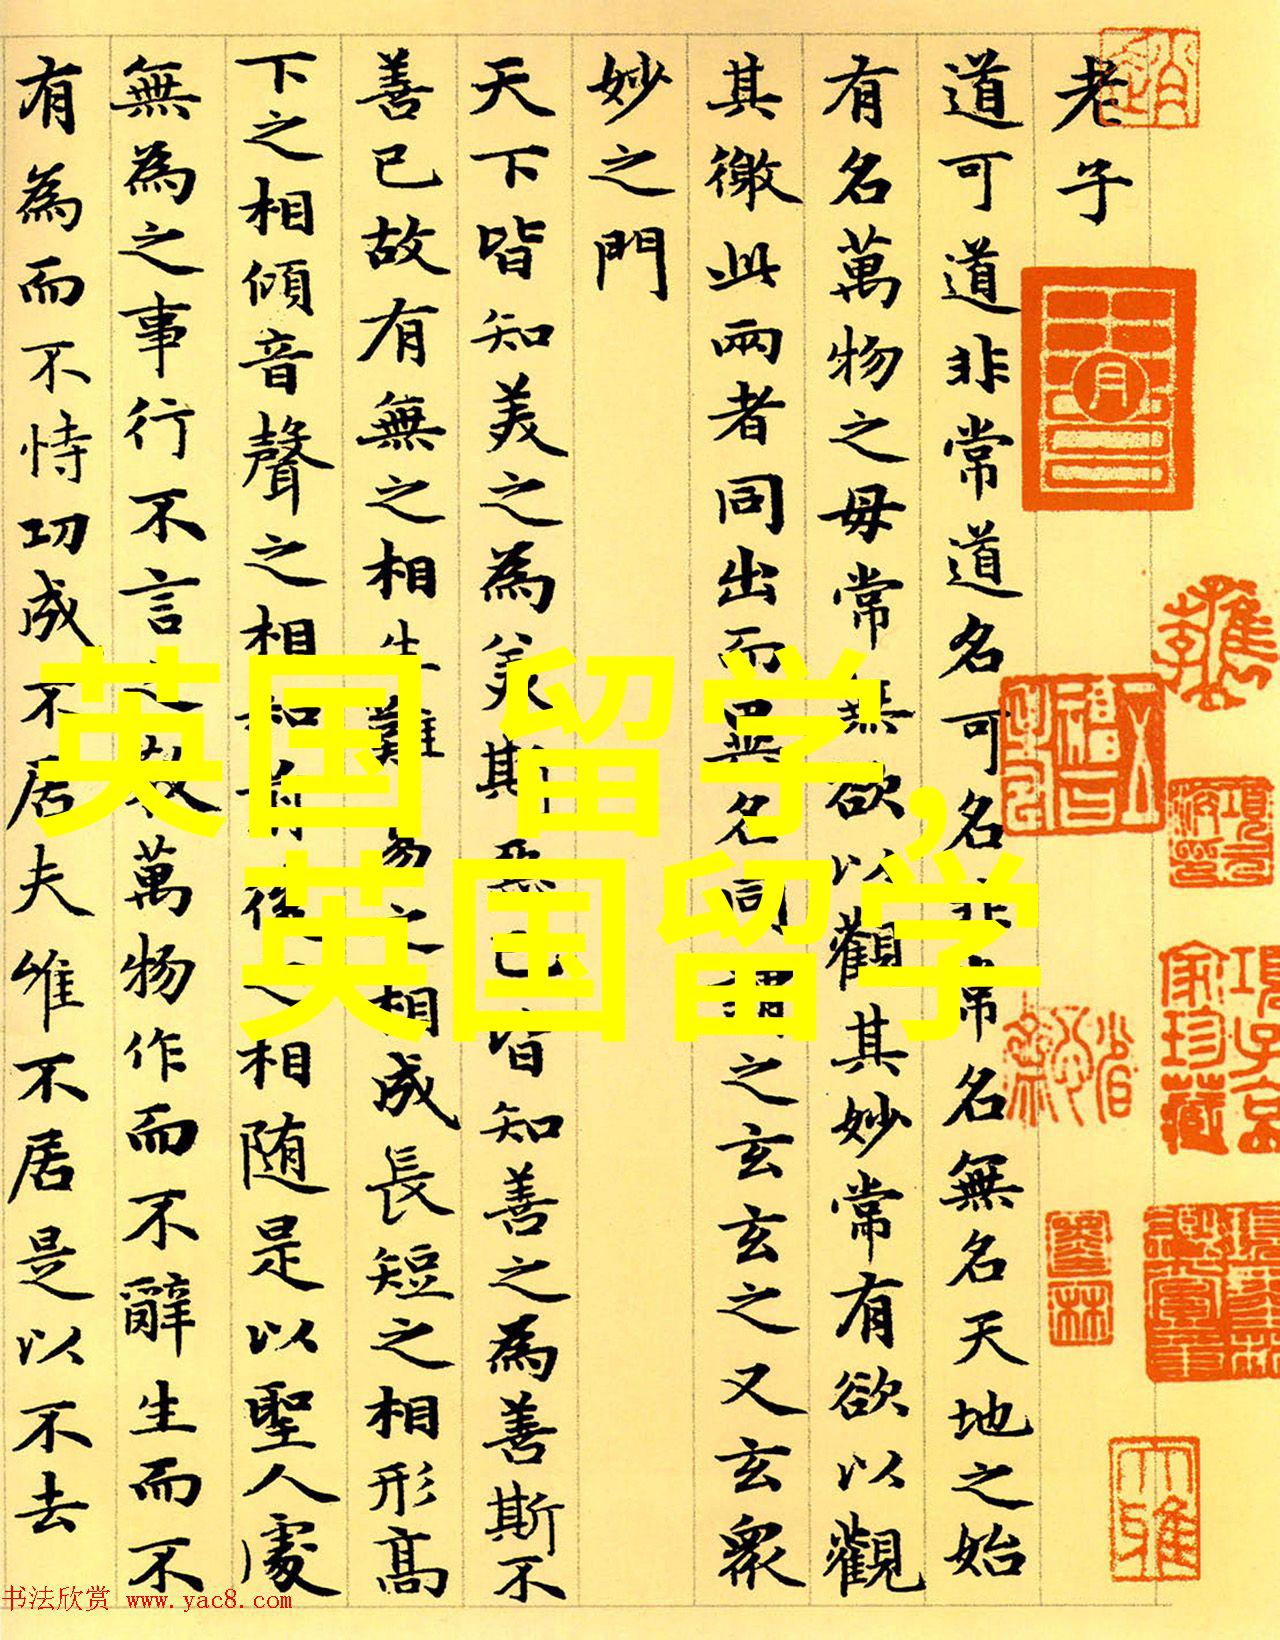 老子
道可道非常道名可名非常名無名天地之始
有名萬物之母常無欲以觀其妙常有欲以觀
其徼此兩者同出而異名同謂之玄玄之又玄眾
妙之門
天下皆知美之為美斯惡已皆知善之為善斯不
善已故有無之相生難易之相成長短之相形高
下之相傾音聲之相和前後之相随是以聖人處
無為之事行不言之教萬物作而不辭生而不
有為而不恃功成不居夫唯不居是以不去
項子京家珍藏
英国 留学,
英国留学
书法欣赏 www.yac8.com